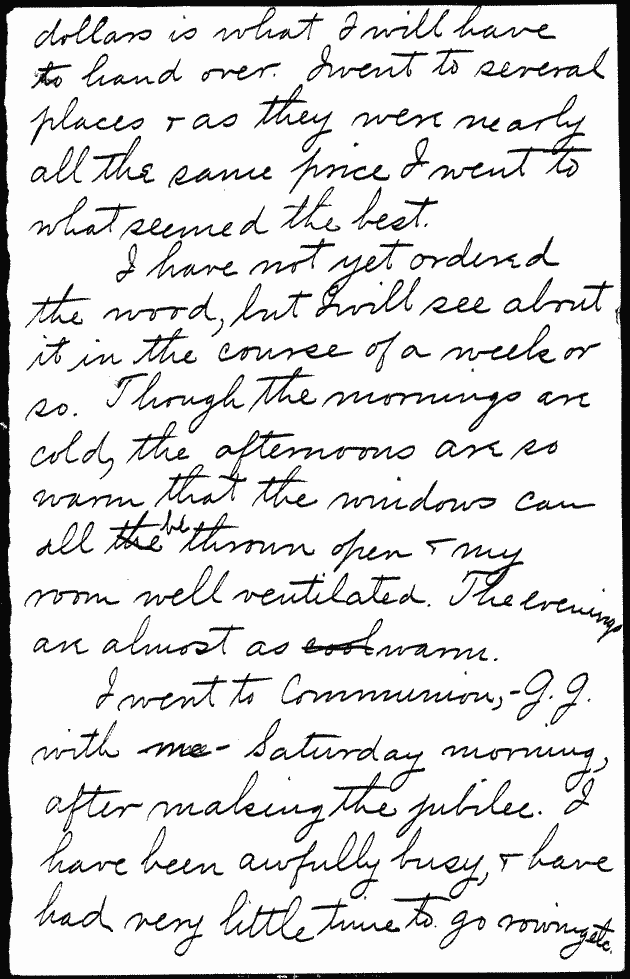 dollars is what I will have
to hand over. I went to several
places & as they were nearly
all the same price I went to
what seemed the best.
I have not yet ordered
the wood, but I will see about
it in the course of a week or
so. Though the mornings are
cold, the afternoons are so
warm that the windows can
all the be thrown open & my
room well ventilated. The evenings
are almost as cool warm.
I went to Communion, - G. G.
with me - Saturday morning,
after making the jubilee. I
have been awfully busy, & have
had very little time to go rowing etc.